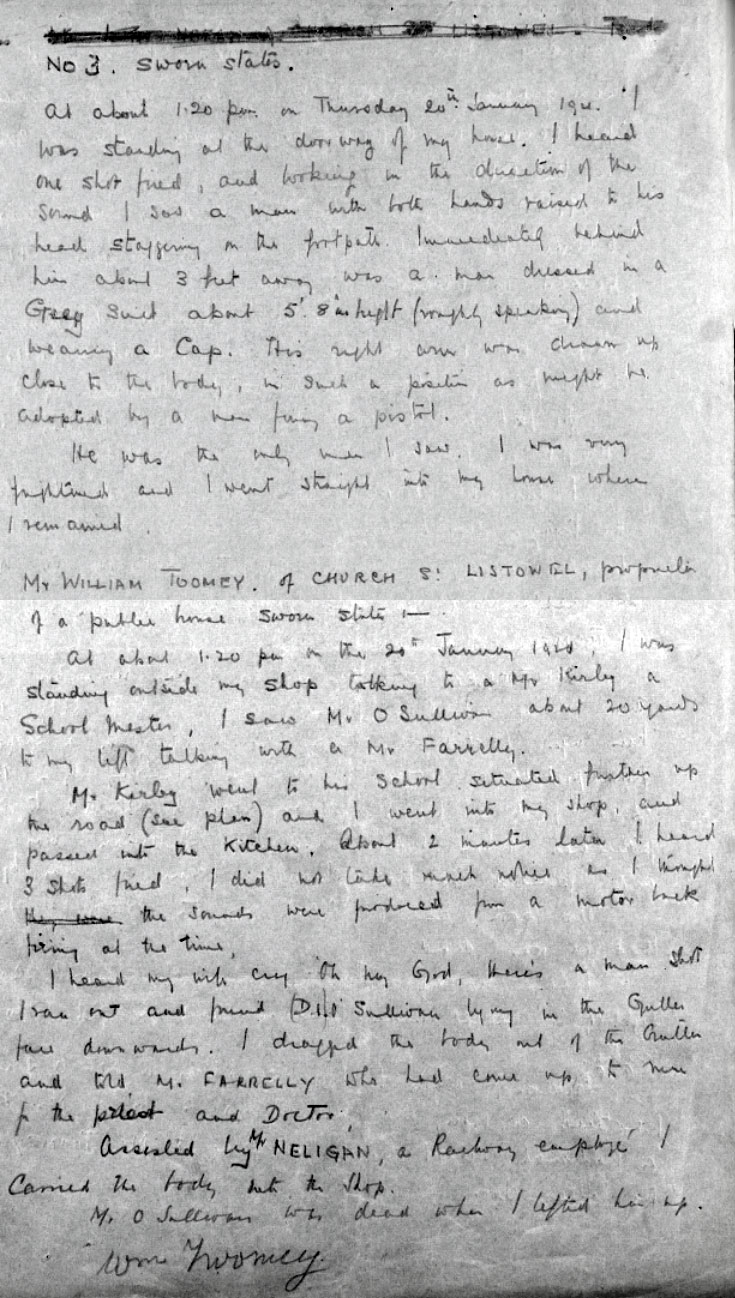 No 3. Sworn states.
At about 1.20 pm on Thursday 20th January 1921. I
was standing at the doorway of my house. I heard
one shot fired, and looking in the direction of the
sound I saw a man with both hands raised to his
head staggering on the footpath. Immediately behind
him about 3 feet away was a man dressed in a
Grey Suit about 5'. 8" in height (roughly speaking) and
wearing a Cap. His right arm was drawn up
close to the body, in such a position as might be
adopted by a man firing a pistol.
He was the only man I saw. I was very
frightened and I went straight into my house where
I remained.
Mr WILLIAM TOOMEY. of CHURCH St LISTOWEL, proprietor
of a public house sworn states :—
At about 1.20 pm on the 20th January 1921, I was
standing outside my shop talking to a Mr Kirby a
School Master, I saw Mr O Sullivan about 20 yards
to my left talking with a Mr Farrelly.
Mr Kirby went to his School situated further up
the road (see plan) and I went into my shop, and
passed into the Kitchen. About 2 minutes later I heard
3 shots fired, I did not take much notice as I thought
they were the sounds were produced from a motor back
firing at the time.
I heard my wife cry Oh my God, there's a man shot
I ran out and found (D.I.) O Sullivan lying in the Gutter
face downwards. I dragged the body out of the Gutter
and told Mr. FARRELLY who had come up, to run
for the priest and Doctor.
Assisted by Mr NELIGAN, a Railway employé I
Carried the body into the Shop.
Mr O Sullivan was dead when I lifted him up.
Wm Twomey.